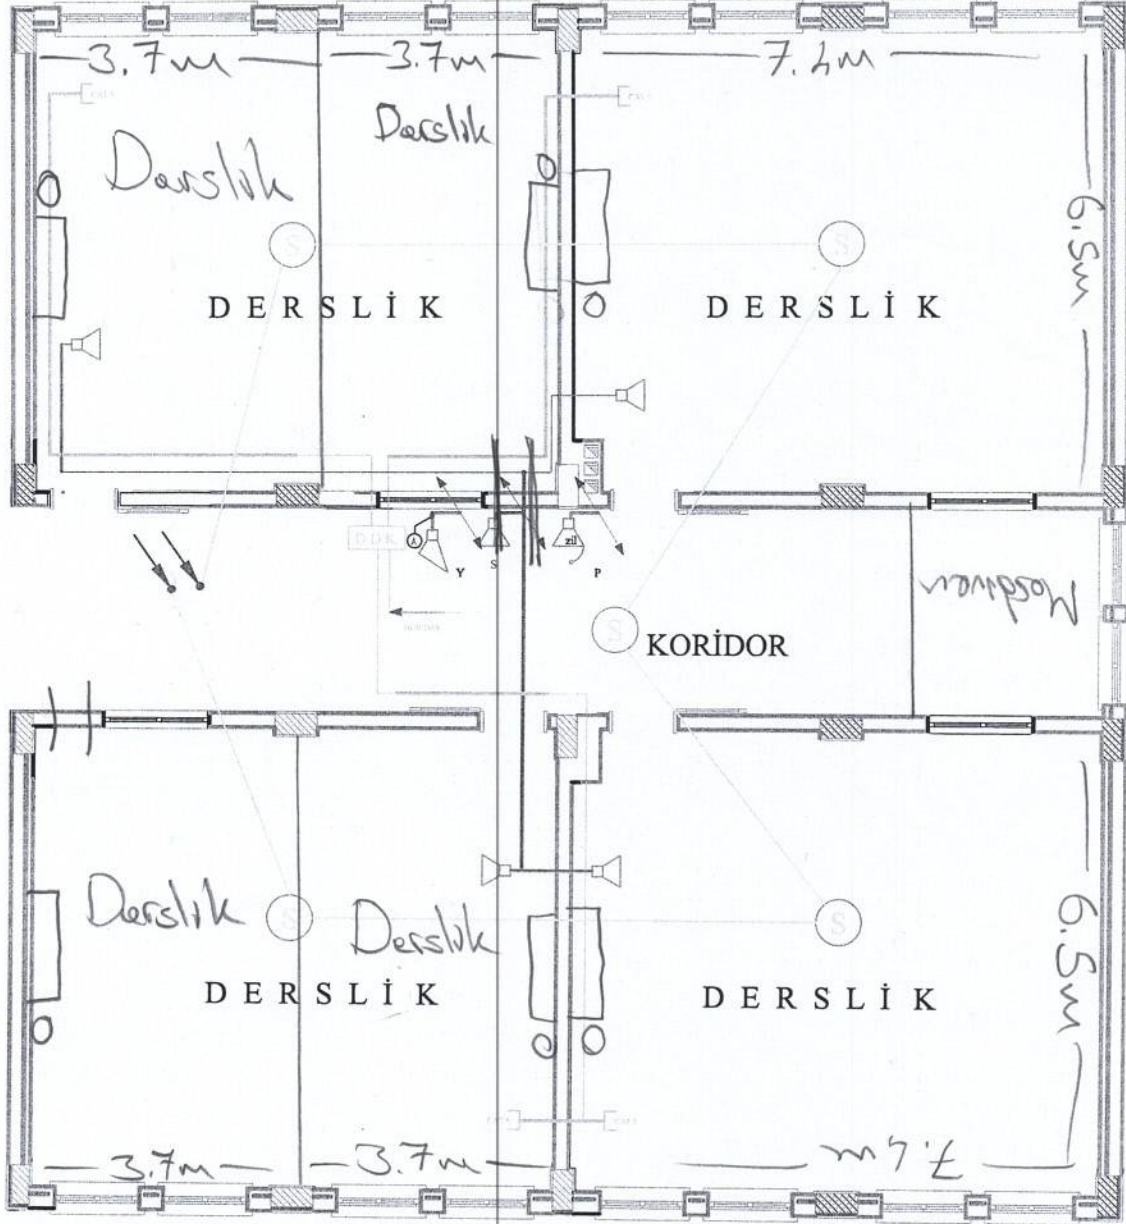 3.7m 3.7m 7.4m
Derslik Derslik
6.5m
S S
DERSLİK DERSLİK
DDK A zil
Y S P
S KORİDOR
Merdiven
Derslik Derslik
S S
6.5m
DERSLİK DERSLİK
3.7m 3.7m 7.4m